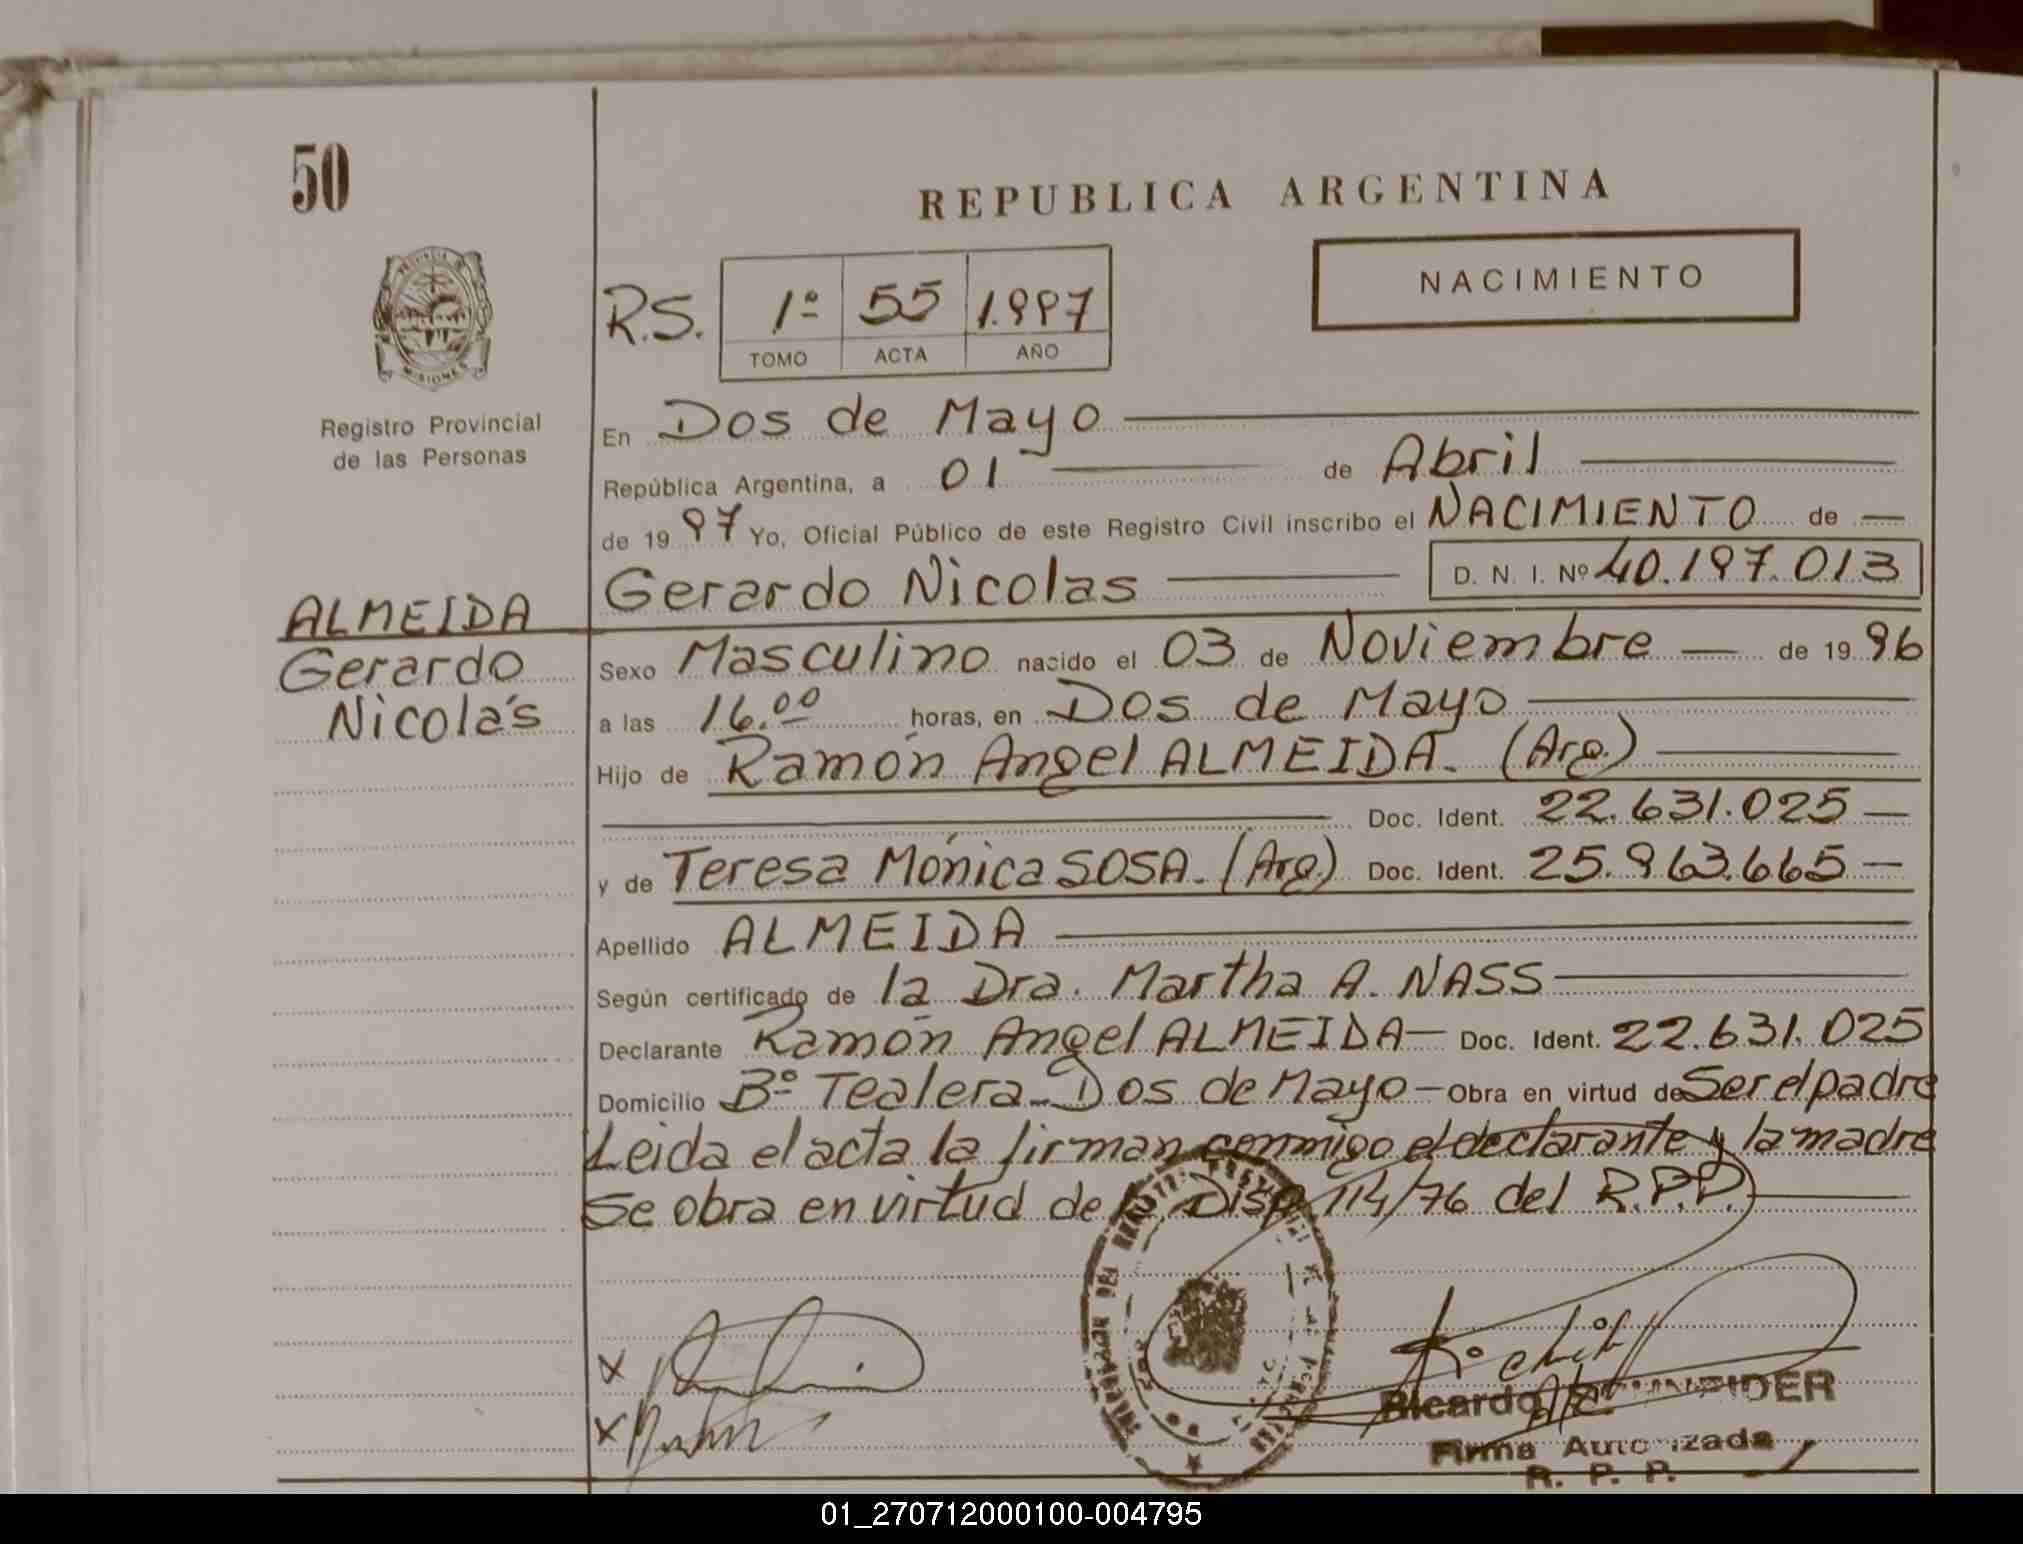 50
REPUBLICA ARGENTINA
NACIMIENTO
R.S. 1º 55 1.997
TOMO ACTA AÑO
Registro Provincial
de las Personas
En Dos de Mayo
República Argentina, a 01 de Abril
de 19 97 Yo, Oficial Público de este Registro Civil inscribo el NACIMIENTO de
Gerardo Nicolas D. N. I. Nº 40.197.013
ALMEIDA
Gerardo
Nicolás
Sexo Masculino nacido el 03 de Noviembre de 19 96
a las 16.00 horas, en Dos de Mayo
Hijo de Ramón Angel ALMEIDA. (Arg.)
Doc. Ident. 22.631.025
y de Teresa Mónica SOSA. (Arg.) Doc. Ident. 25.963.665
Apellido ALMEIDA
Según certificado de la Dra. Martha A. NASS
Declarante Ramón Angel ALMEIDA Doc. Ident. 22.631.025
Domicilio Bº Tealera Dos de Mayo Obra en virtud de Ser el padre
Leida el acta la firman conmigo el declarante y la madre
Se obra en virtud de la Disp. 114/76 del R.P.P.
Ricardo SCHNEIDER
Firma Autorizada
R. P. P.
PROVINCIA DE
MISIONES
01_270712000100-004795